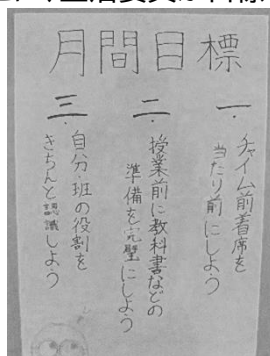 月間目標
一.チャイム前着席を
当たり前にしよう
二.授業前に教科書などの
準備を完璧にしよう
三.自分・班の役割を
きちんと認識しよう